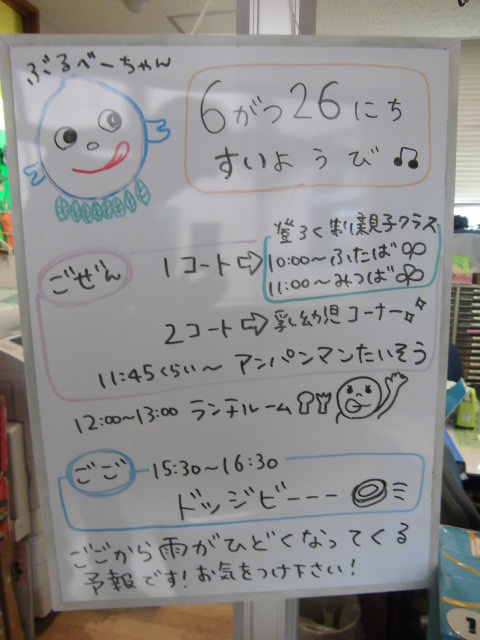 ぶるべーちゃん
6がつ26にち
すいようび♫
登ろく制親子クラス
ごぜん 1コート⇨ 10:00~ふたば
11:00~みつば
2コート⇨乳幼児コーナー
11:45くらい~アンパンマンたいそう
12:00~13:00 ランチルーム
ごご 15:30~16:30
ドッジビーーー
ごごから雨がひどくなってくる
予報です!お気をつけ下さい!